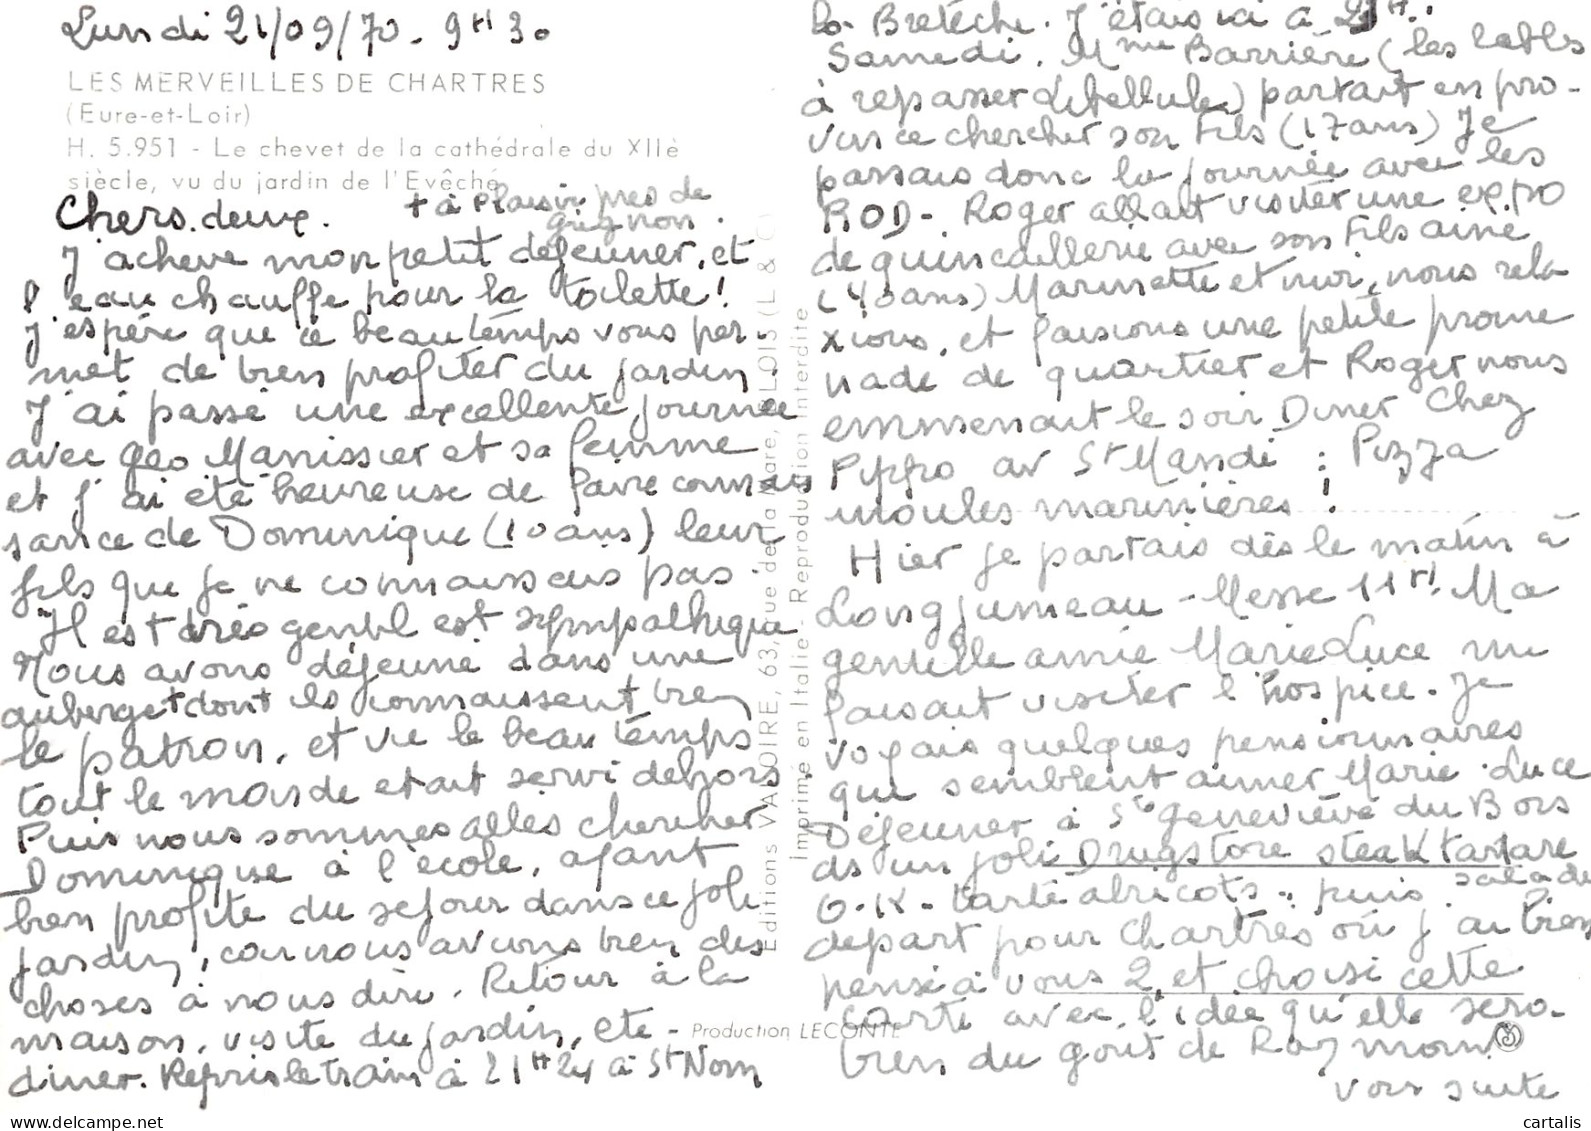 Lundi 21/09/70. 9H30
LES MERVEILLES DE CHARTRES
(Eure-et-Loir)
H. 5.951 - Le chevet de la cathédrale du XIIè
siècle, vu du jardin de l'Evêché
+ à Plaisir près de
grignon.
Chers deux.
J'achève mon petit déjeuner, et
l'eau chauffe pour la toilette!
J'espère que ce beau temps vous per-
met de bien profiter du jardin.
J'ai passé une excellente journée
avec Géo Manissier et sa femme
et j'ai été heureuse de faire connais
sance de Dominique (10 ans) leur
fils que je ne connaissais pas.
Il est très gentil est sympathique
Nous avons déjeuné dans une
auberge+ dont ils connaissent bien
le patron, et vu le beau temps
tout le monde était servi dehors.
Puis nous sommes allés chercher
Dominique à l'école, ayant
bien profité du séjour dans ce joli
jardin, car nous avions bien des
choses à nous dire. Retour à la
maison, visite du jardin, etc -
diner. Repris le train à 21H24 à St Nom
la Bretèche. J'étais ici à H.
Samedi. Mme Barrière (les tables
à repasser Libellule) partait en pro-
vince chercher son fils (17 ans) Je
passais donc la journée avec les
ROD- Roger allait visiter une expo
de quincaillerie avec son fils ainé
(40 ans) Marinette et moi, nous rela
xions, et faisions une petite prome
nade de quartier et Roger nous
emmenait le soir Diner Chez
Pippo av St Mandé : Pizza
moules marinières!
Hier je partais dès le matin à
Longjumeau - Messe 11H. Ma
gentille amie Marie Luce me
faisait visiter l'hospice. Je
voyais quelques pensionnaires
qui semblent aimer Marie-Luce
Déjeuner à Ste Geneviève du Bois
ds un joli Drugstore steak tartare
O.K - tarte abricots. puis salade
départ pour Chartres où j'ai bien
pensé à vous 2, et choisi cette
carte avec l'idée qu'elle sera
bien du goût de Raymond
voir suite
Editions VALOIRE, 63, rue de la Mare, BLOIS (L & C)
Imprimé en Italie - Reproduction interdite
Production LECONTE
cartalis